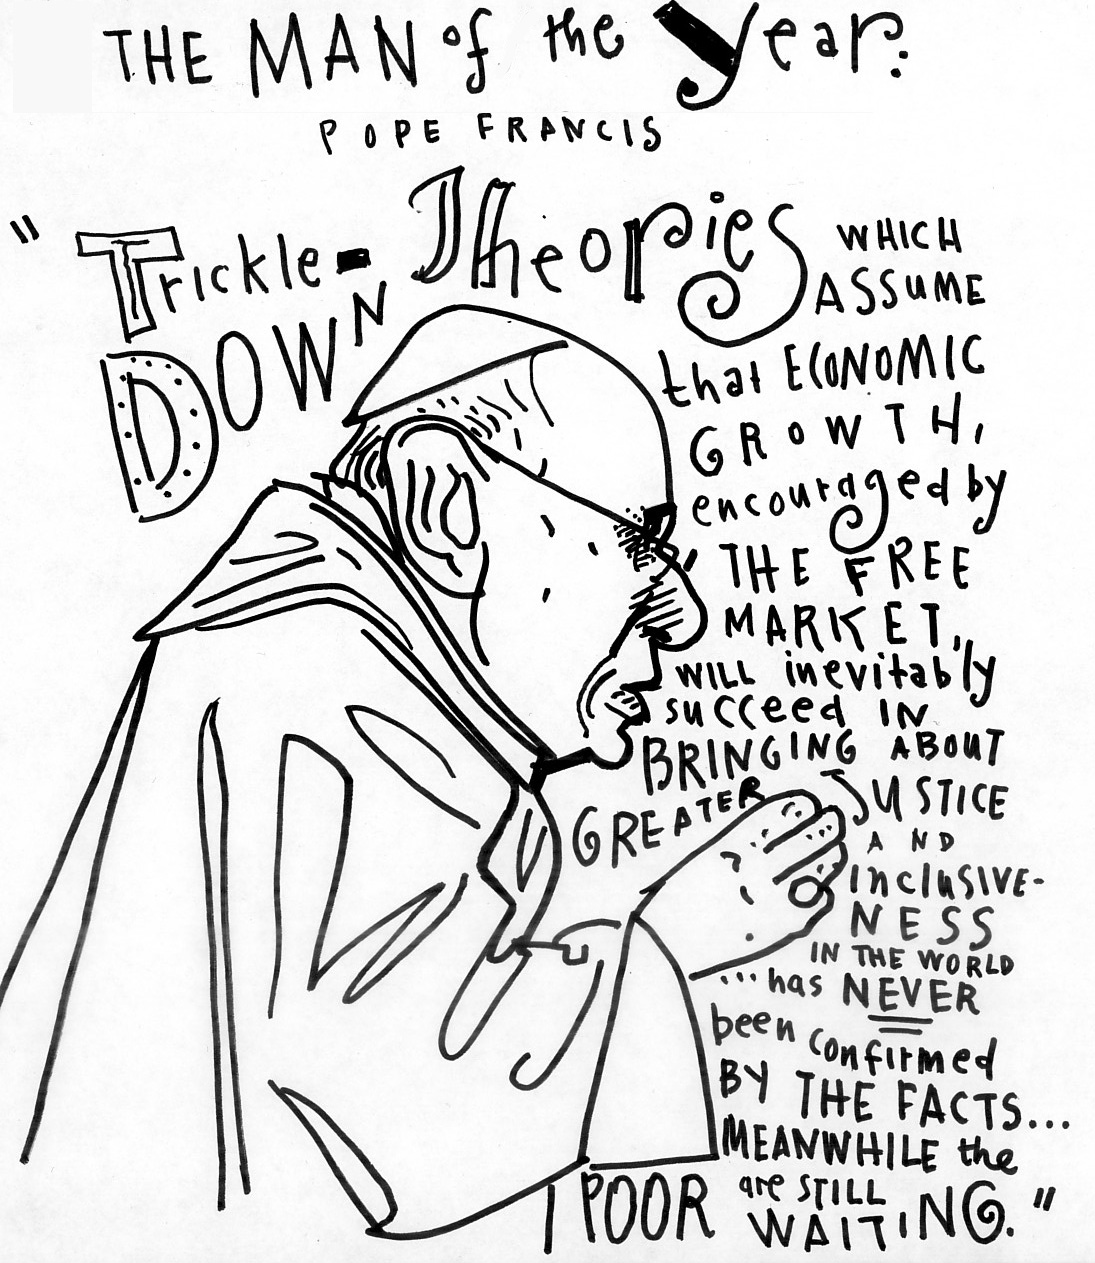 THE MAN of the Year:
POPE FRANCIS
"Trickle-
DOWN
Theories
WHICH
ASSUME
that ECONOMIC
GROWTH,
encouraged by
THE FREE
MARKET,
WILL inevitably
succeed IN
BRINGING ABOUT
GREATER JUSTICE
AND
INCLUSIVE-
NESS
IN THE WORLD
...has NEVER
been confirmed
BY THE FACTS...
MEANWHILE the
POOR are STILL
WAITING."